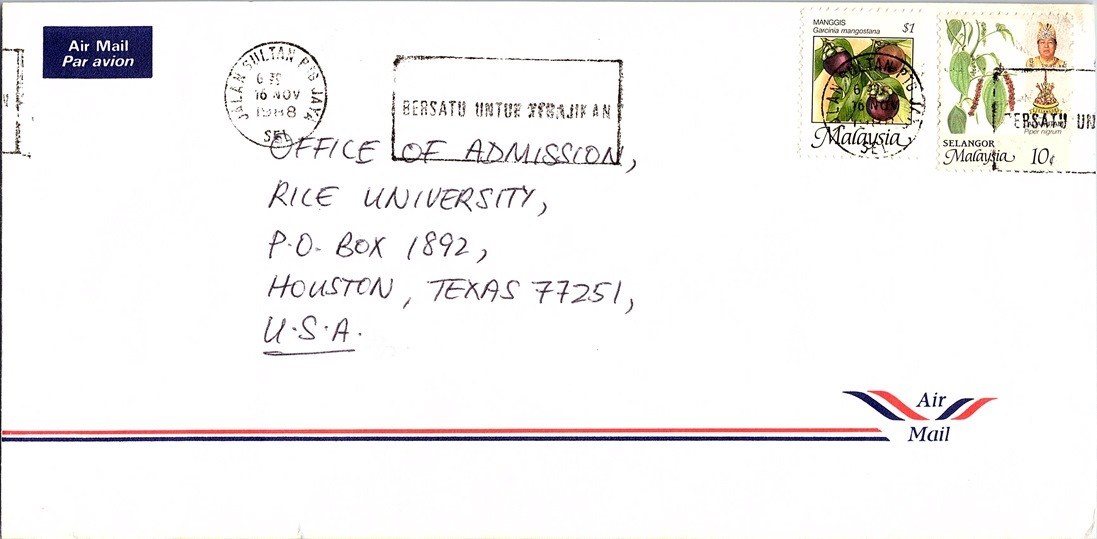 Air Mail
Par avion
JALAN SULTAN PTG JAYA
6 30
16 NOV
1988
SEL
BERSATU UNTUK
MANGGIS
Garcinia mangostana
$1
Malaysia
JALAN SULTAN PTG JAYA
16 NOV
SEL
BERSATU UN
Piper nigrum
SELANGOR
Malaysia 10¢
OFFICE OF ADMISSION,
RICE UNIVERSITY,
P.O. BOX 1892,
HOUSTON, TEXAS 77251,
U.S.A.
Air
Mail